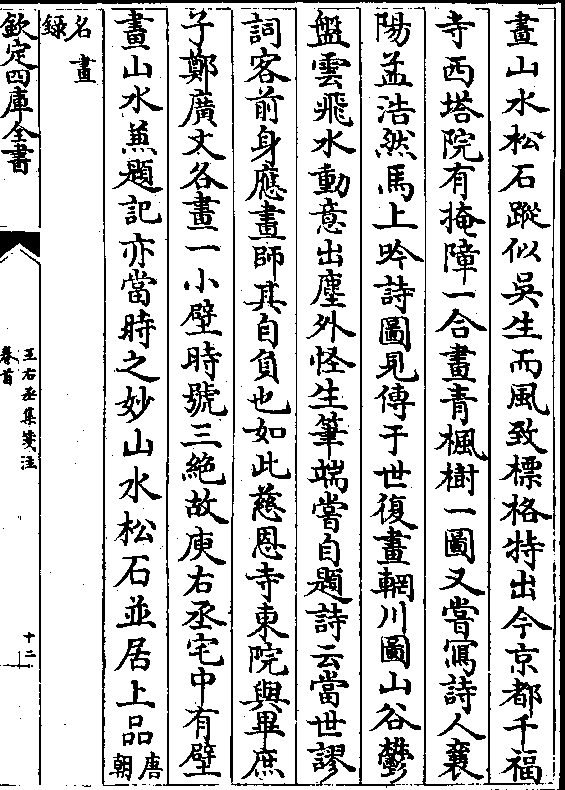 畫山水松石蹤似吳生而風致標格特出今京都千福
寺西塔院有掩障一合畫青楓樹一圖又嘗寫詩人襄
陽孟浩然馬上吟詩圖見傳于世復畫輞川圖山谷鬱
盤雲飛水動意出塵外怪生筆端嘗自題詩云當世謬
詞客前身應畫師其自負也如此慈恩寺東院與畢庶
子鄭廣文各畫一小壁時號三絕故庾右丞宅中有壁
畫山水兼題記亦當時之妙山水松石並居上品唐朝
名畫
錄
欽定四庫全書
王右丞集箋注
卷首
十二